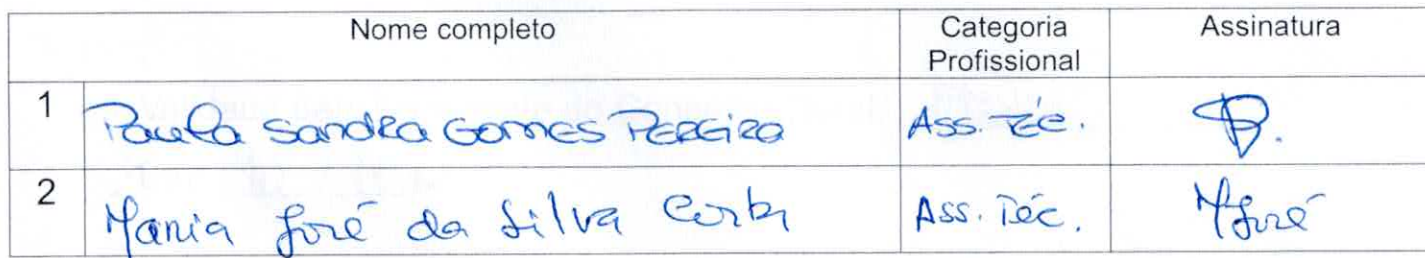 Nome completo Categoria Profissional Assinatura
1 Paula Sandra Gomes Pereira Ass. Téc.
2 Maria José da Silva Costa Ass. Téc. Mª José